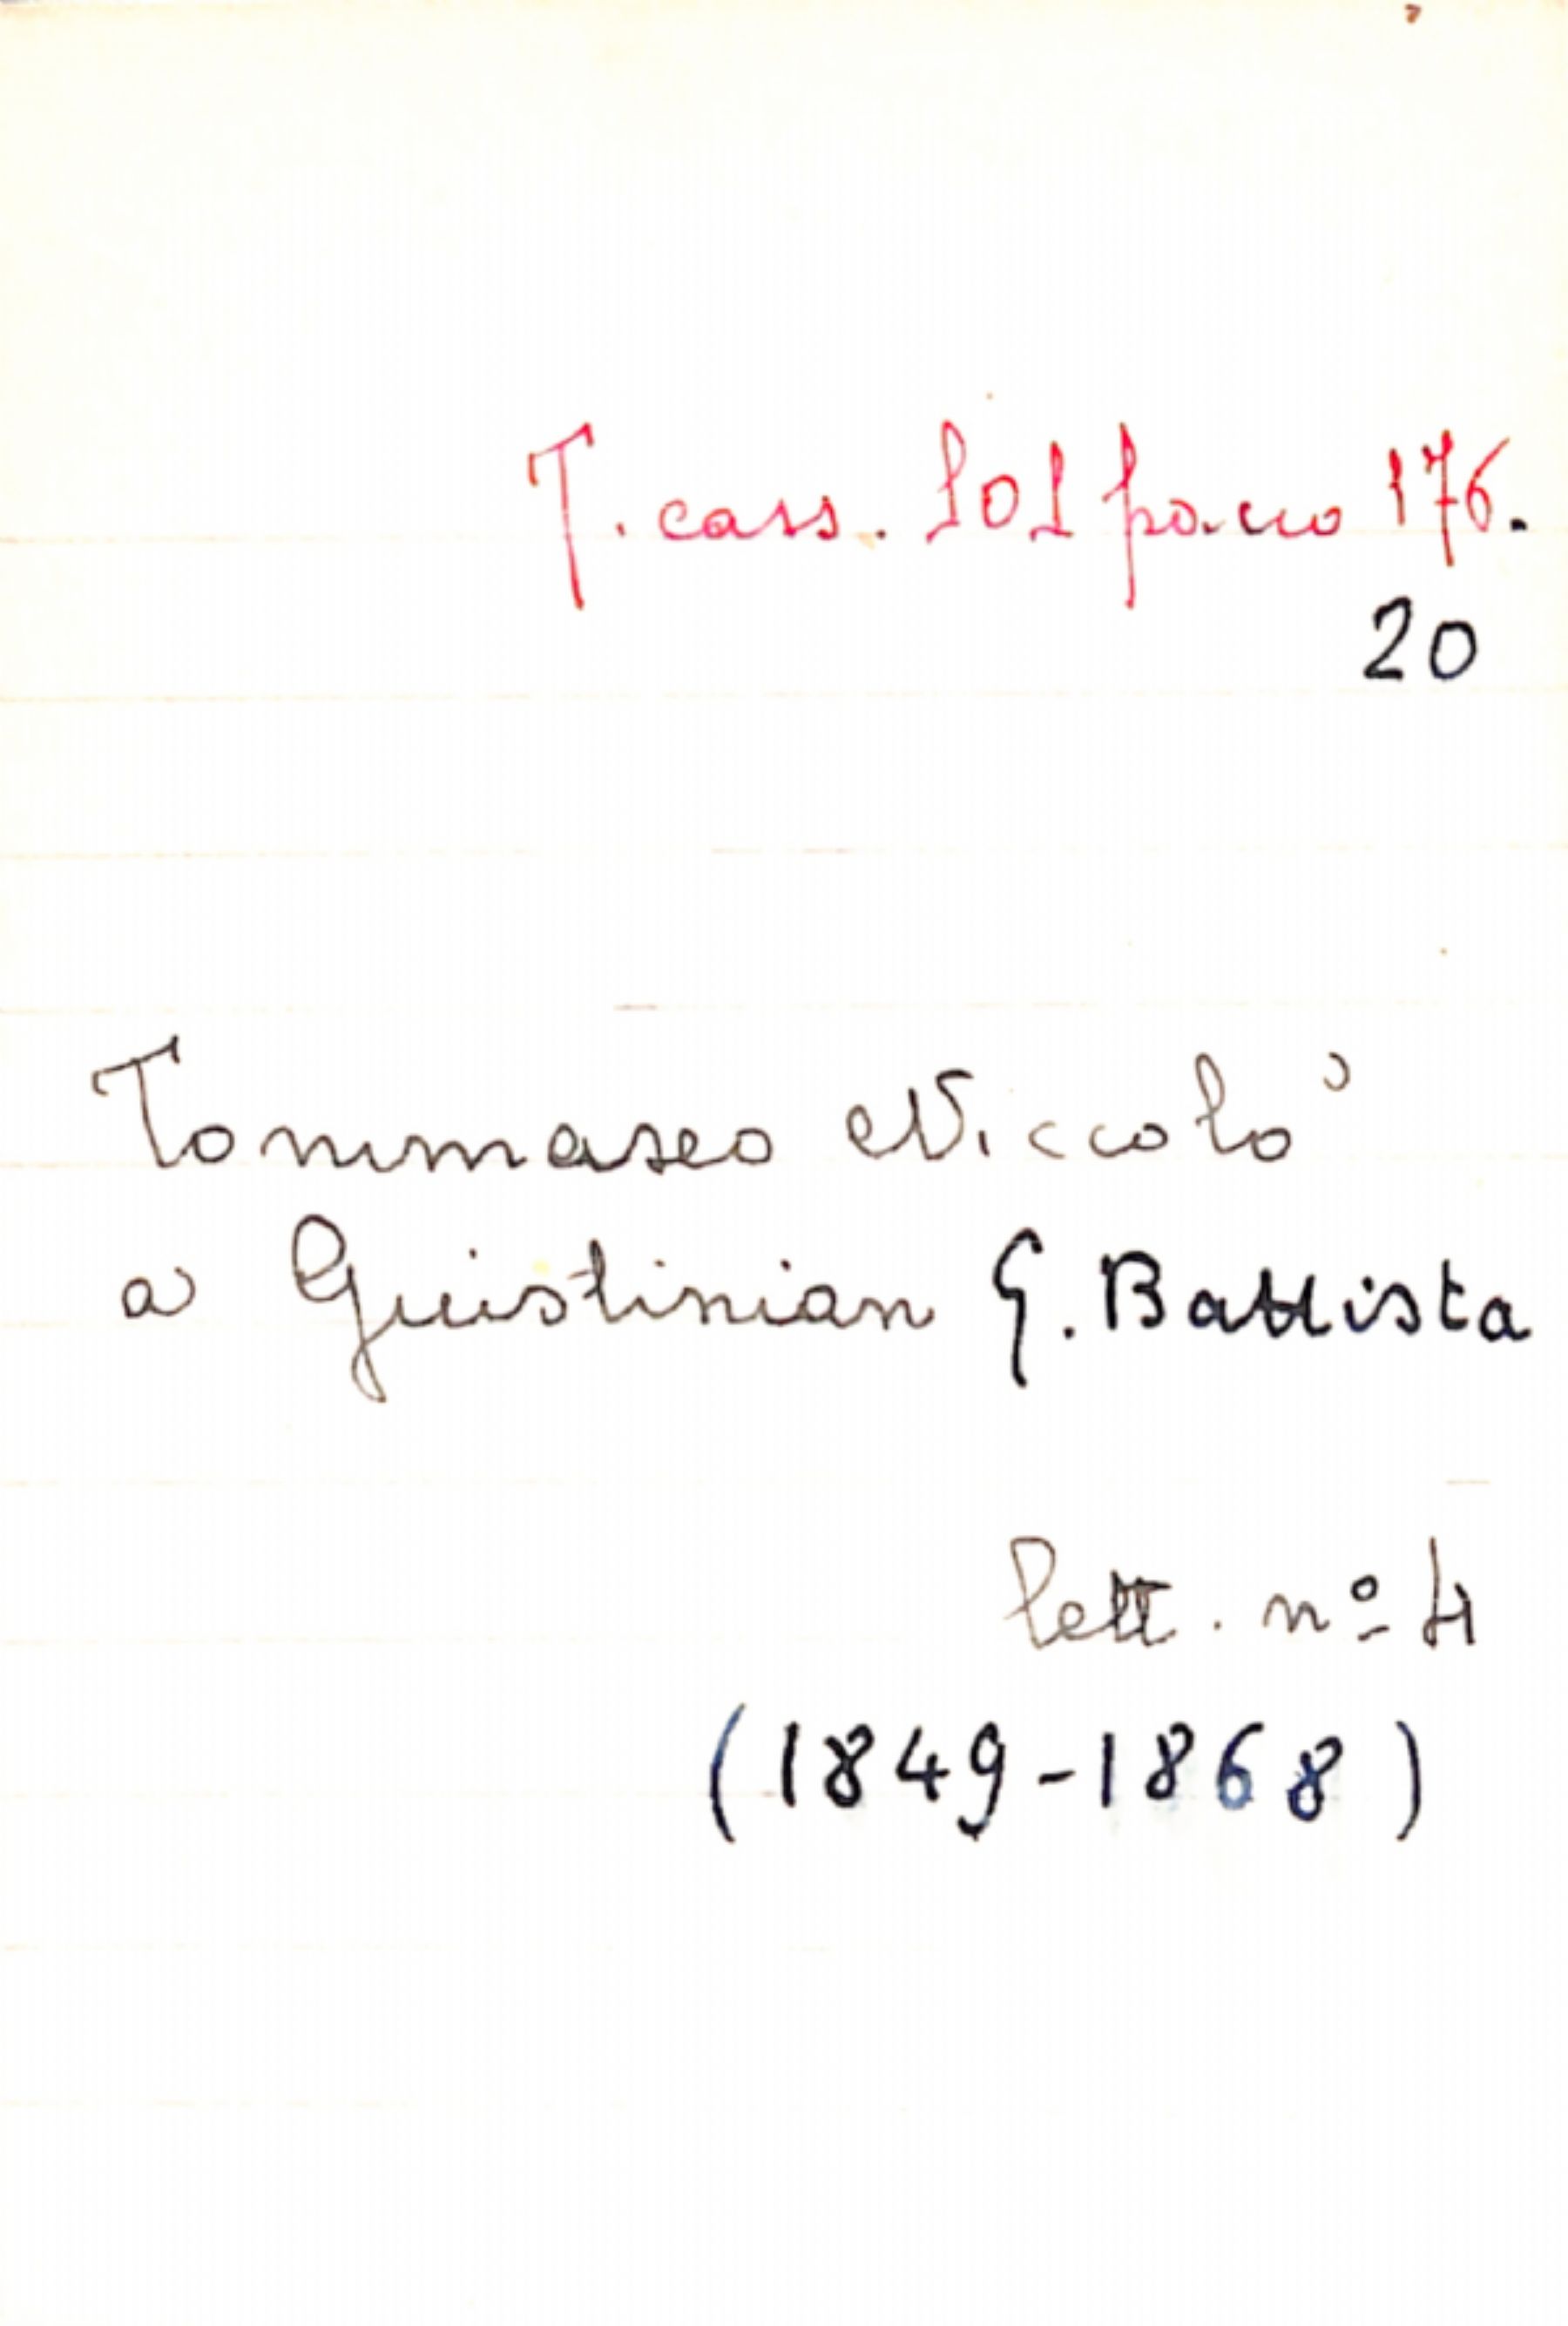 T. cass. 101 pacco 176.
20
Tommaseo Niccolò
a Giustinian G. Battista
lett. nº 4
(1849-1868)